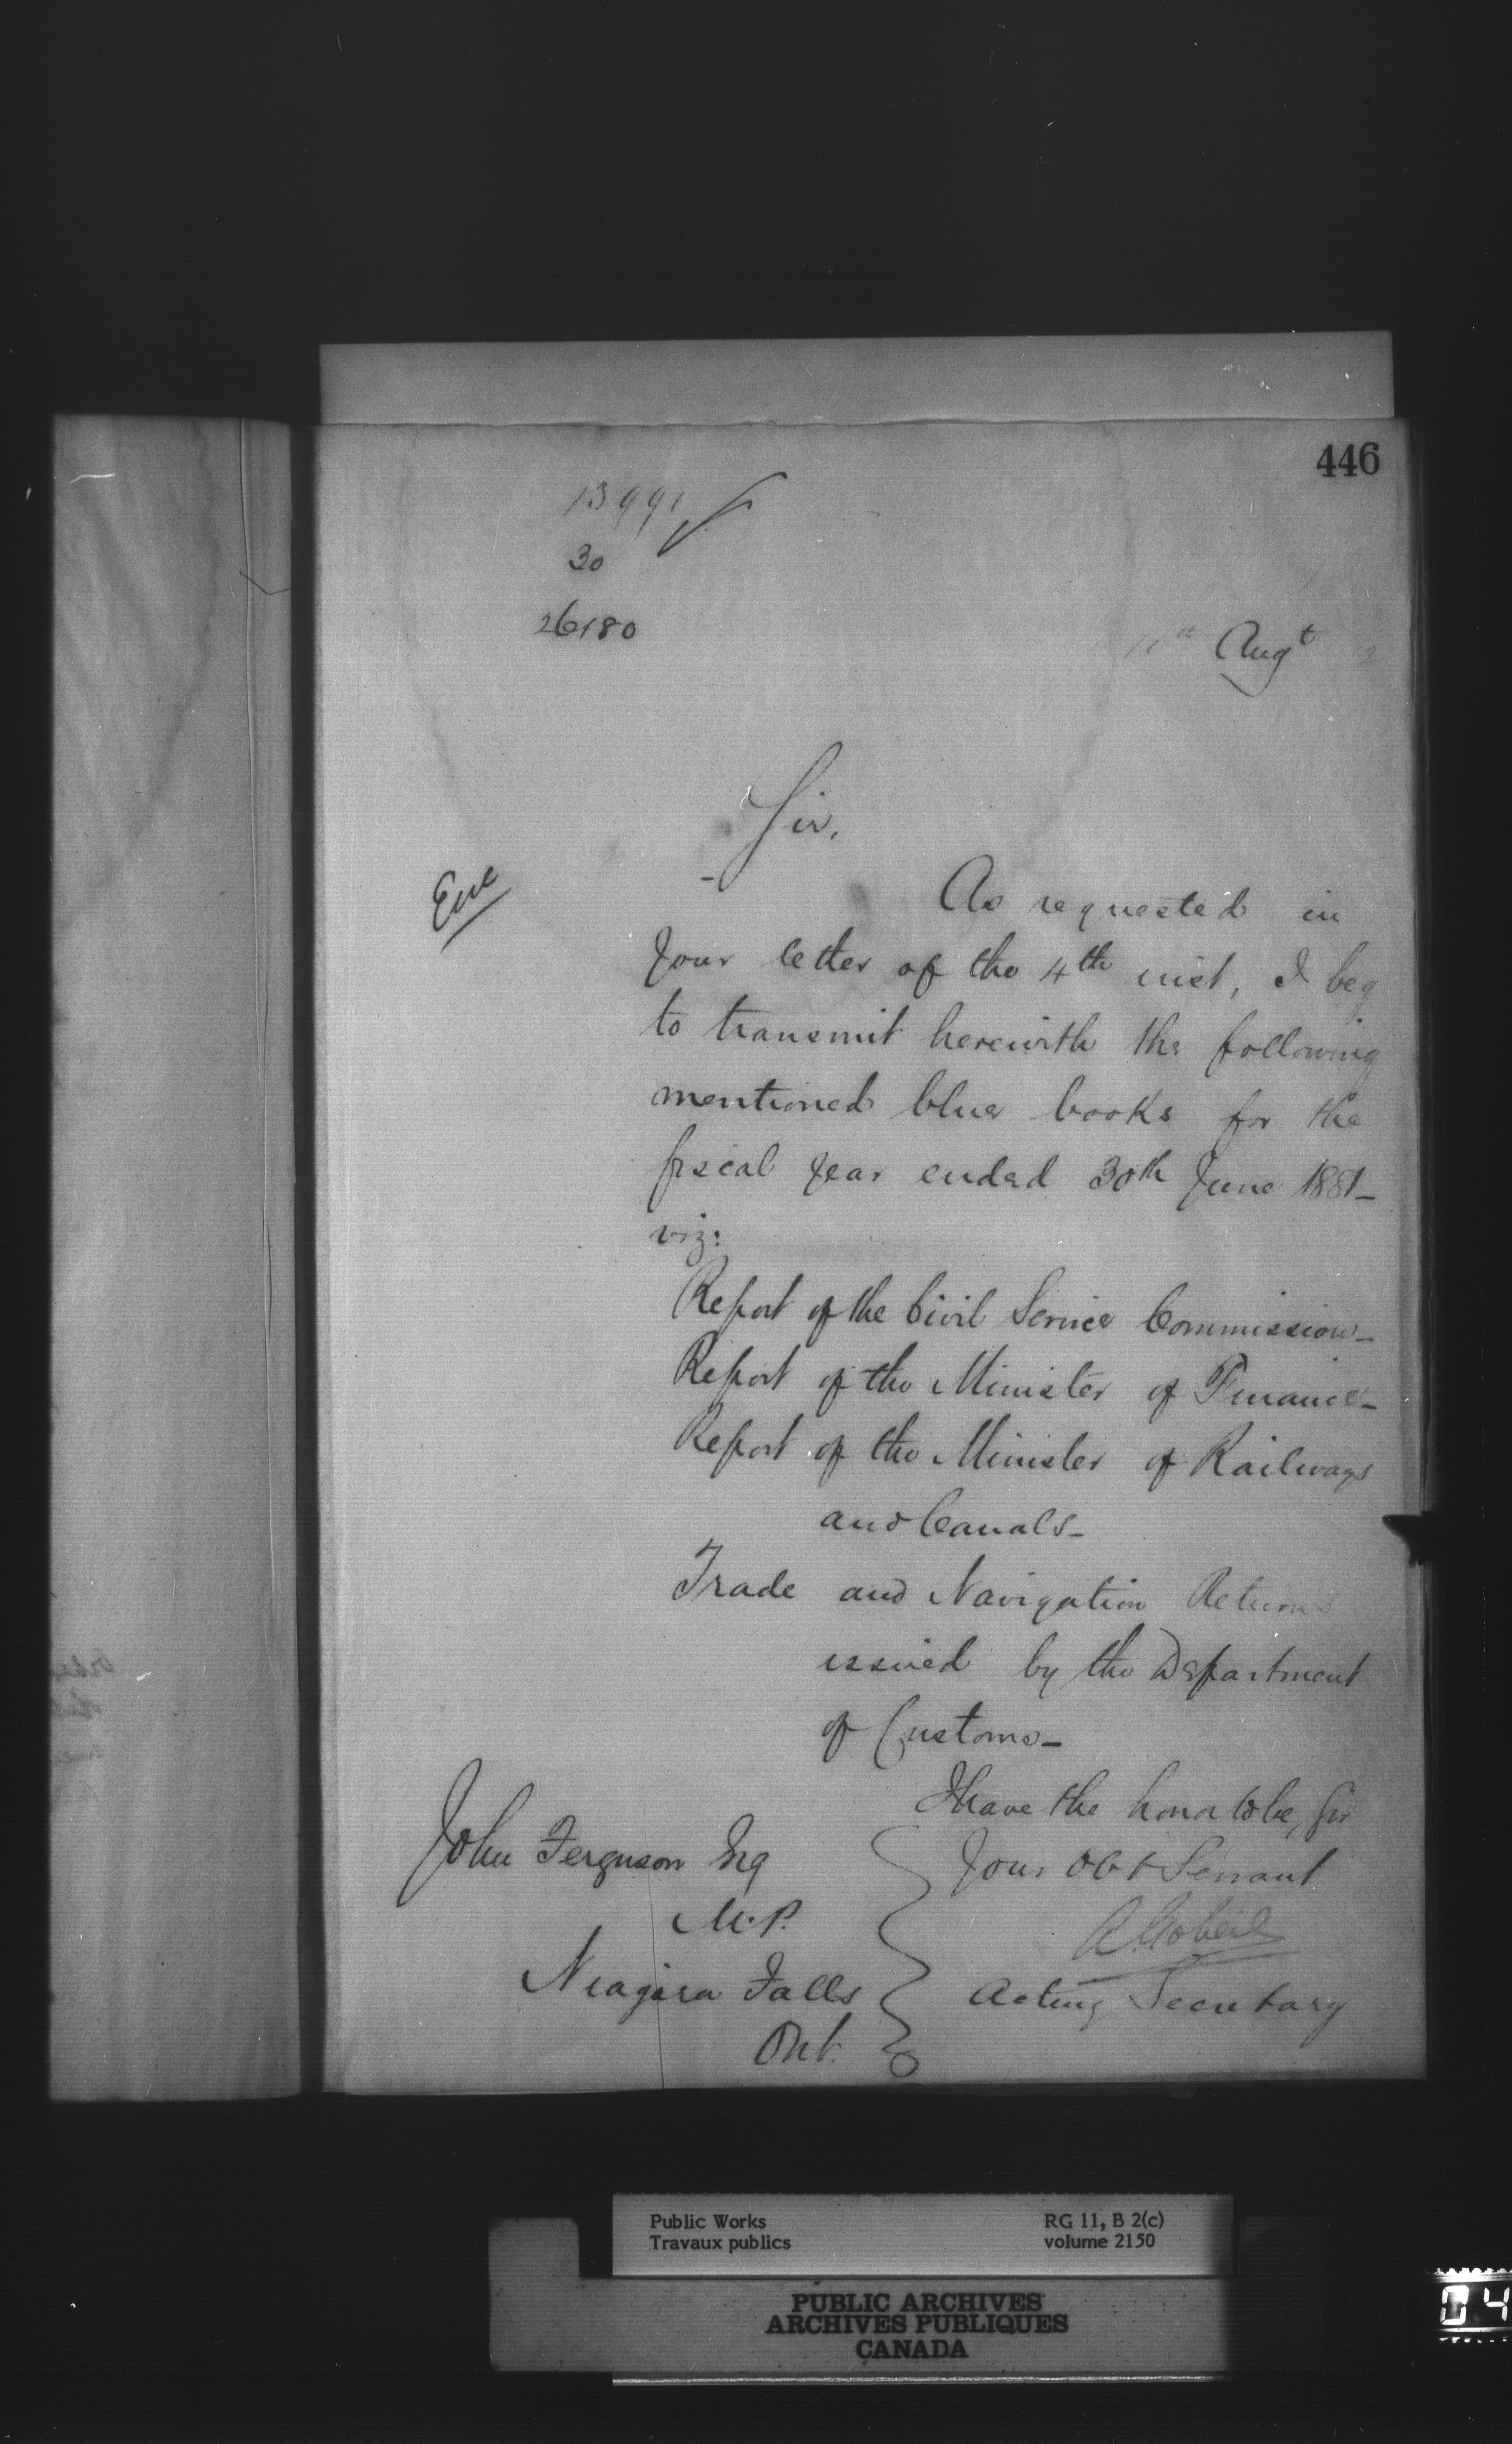 446
13991
30
26180
10th Augt 2
Sir,
Enc
As requested in
your letter of the 4th inst, I beg
to transmit herewith the following
mentioned blue books for the
fiscal year ended 30th June 1881_
viz:
Report of the Civil Service Commission_
Report of the Minister of Finance_
Report of the Minister of Railways
and Canals_
Trade and Navigation Returns
issued by the Department
of Customs_
I have the honor to be, Sir
Your Obt Servant
A. Gobeil
Acting Secretary
John Ferguson Esq
M.P.
Niagara Falls
Ont.
Public Works
Travaux publics
RG 11, B 2(c)
volume 2150
PUBLIC ARCHIVES
ARCHIVES PUBLIQUES
CANADA
04